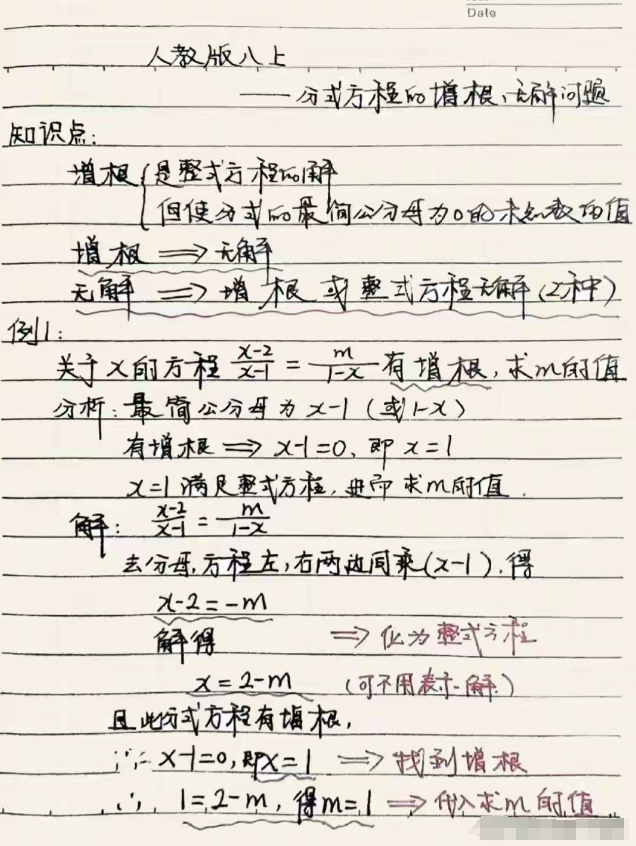 Date
人教版八上
——分式方程的增根、无解问题
知识点:
增根{是整式方程的解
但使分式的最简公分母为0的未知数的值
增根 ⟹ 无解
无解 ⟹ 增根 或 整式方程无解(2种)
例1:
关于x的方程 (x-2)/(x-1) = m/(1-x) 有增根,求m的值
分析:最简公分母为 x-1 (或1-x)
有增根 ⟹ x-1=0, 即 x=1
x=1 满足整式方程,进而求m的值.
解: (x-2)/(x-1) = m/(1-x)
去分母,方程左,右两边同乘(x-1).得
x-2=-m
解得 ⟹ 化为整式方程
x=2-m (可不用表示解)
且此分式方程有增根,
∵ x-1=0,即x=1 ⟹ 找到增根
∴ 1=2-m, 得m=1 ⟹ 代入求m的值